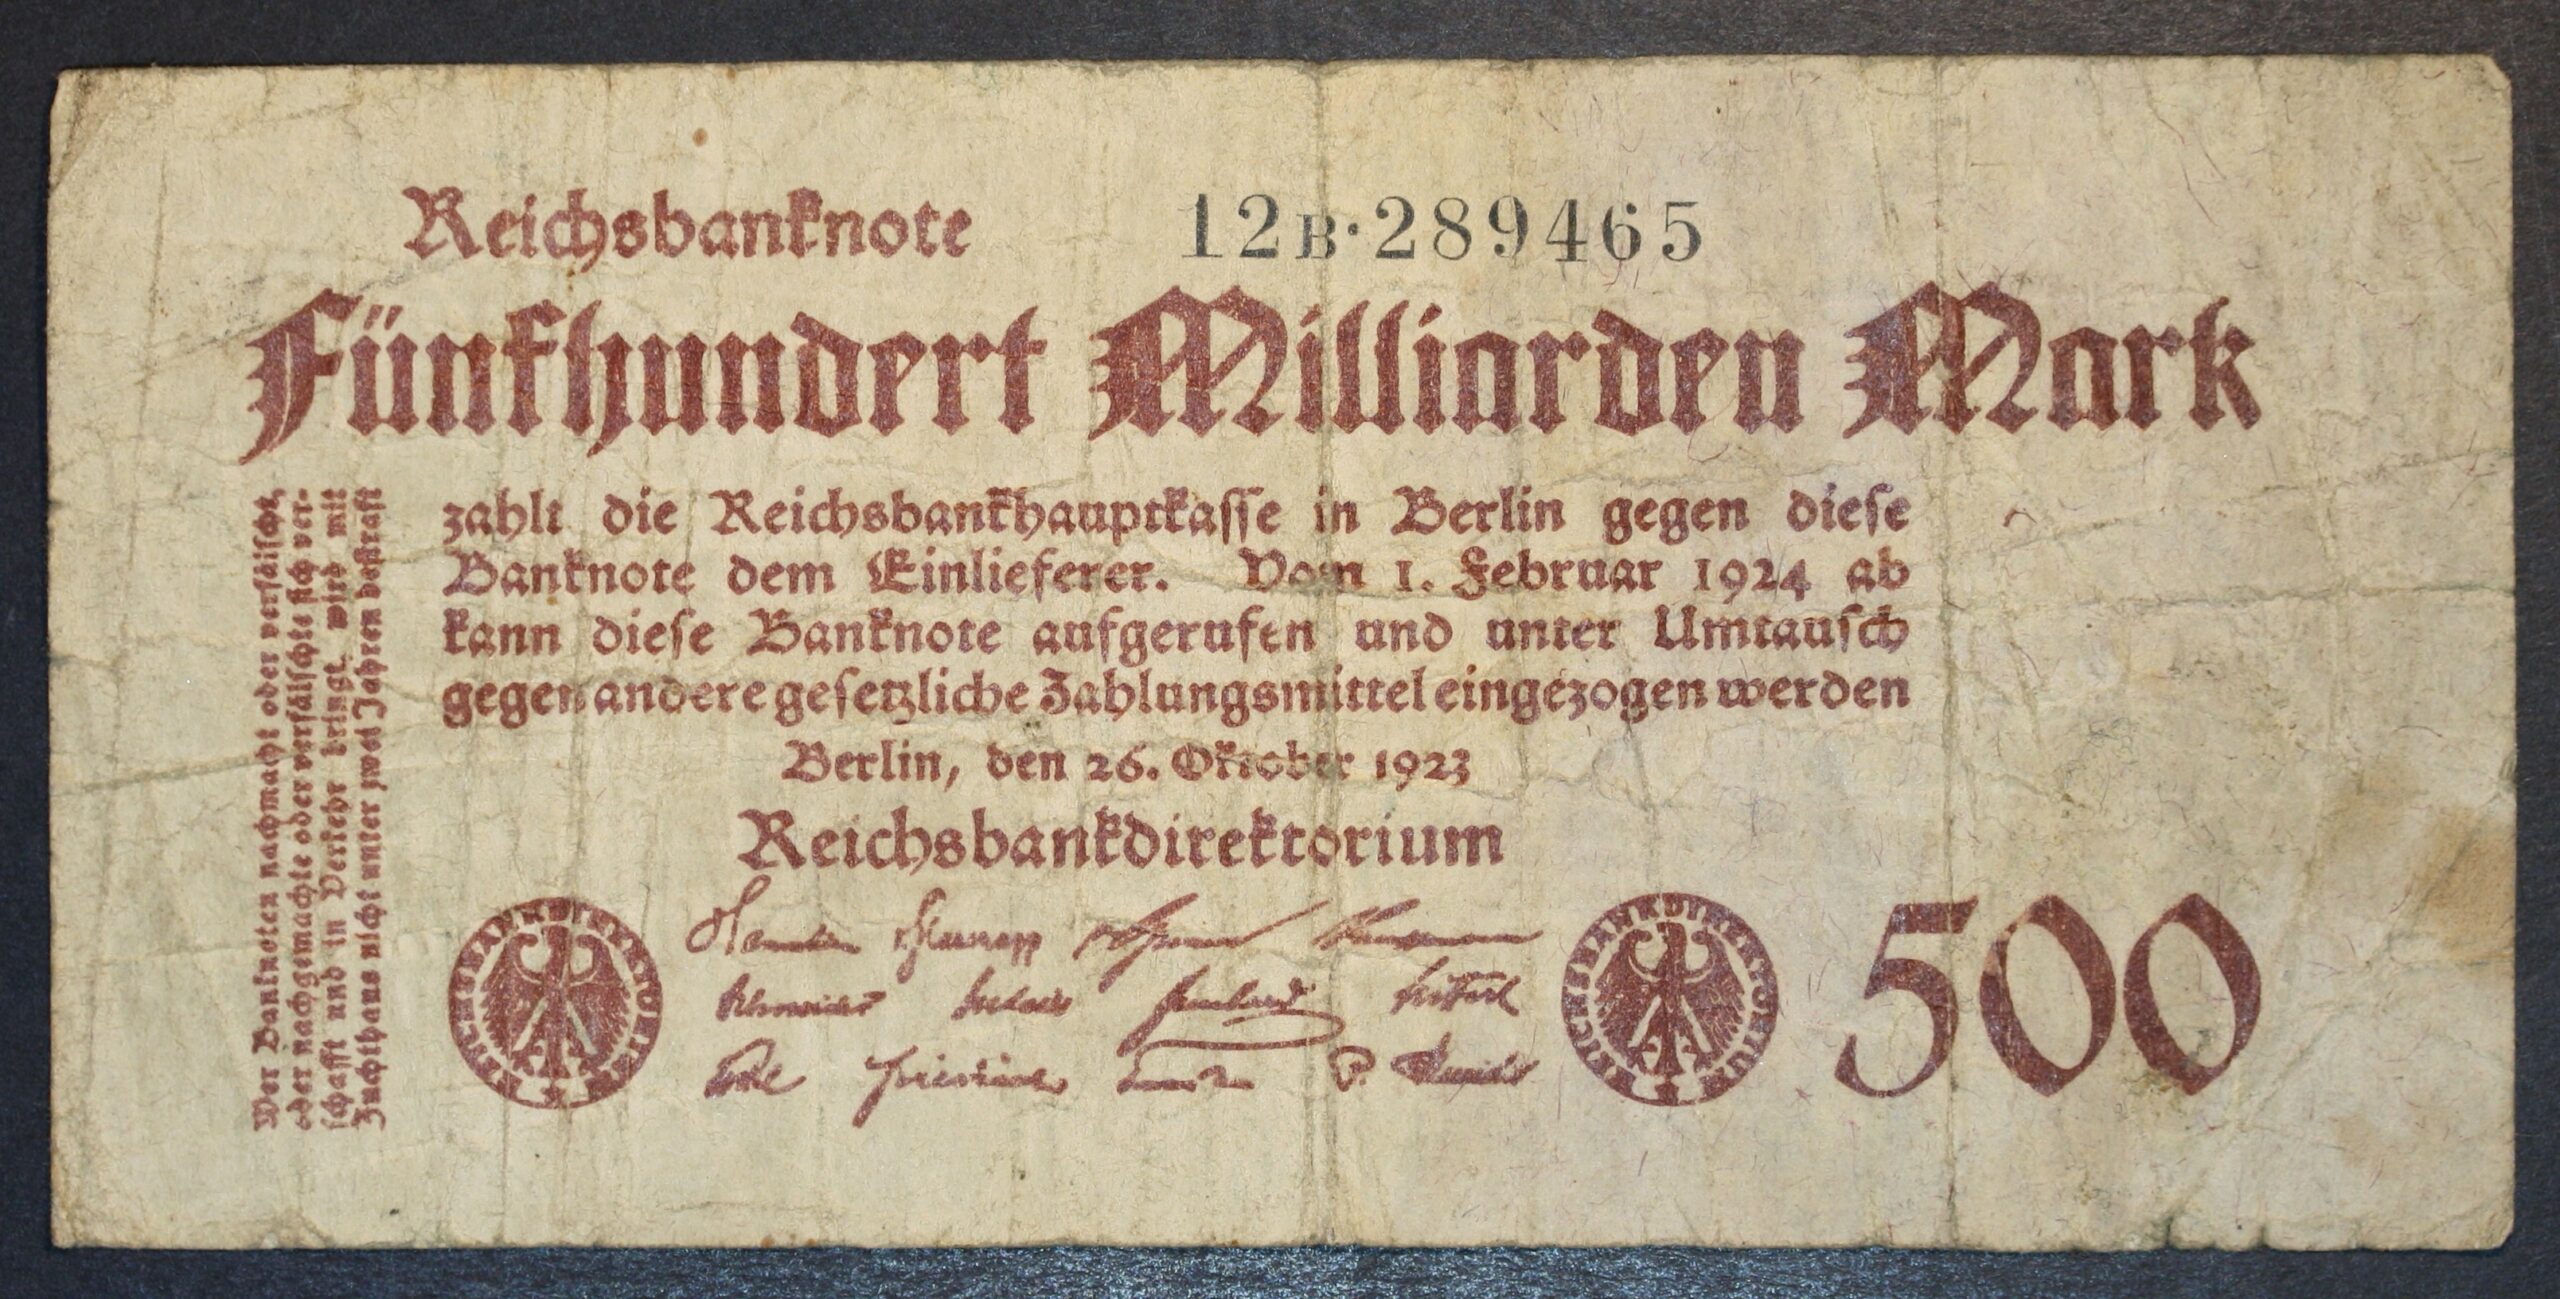 Reichsbanknote
12B·289465
Fünfhundert Milliarden Mark
zahlt die Reichsbankhauptkasse in Berlin gegen diese
Banknote dem Einlieferer. Vom 1. Februar 1924 ab
kann diese Banknote aufgerufen und unter Umtausch
gegen andere gesetzliche Zahlungsmittel eingezogen werden
Berlin, den 26. Oktober 1923
Reichsbankdirektorium
Wer Banknoten nachmacht oder verfälscht,
oder nachgemachte oder verfälschte sich ver-
schafft und in Verkehr bringt, wird mit
Zuchthaus nicht unter zwei Jahren bestraft
REICHSBANKDIREKTORIUM
REICHSBANKDIREKTORIUM
500